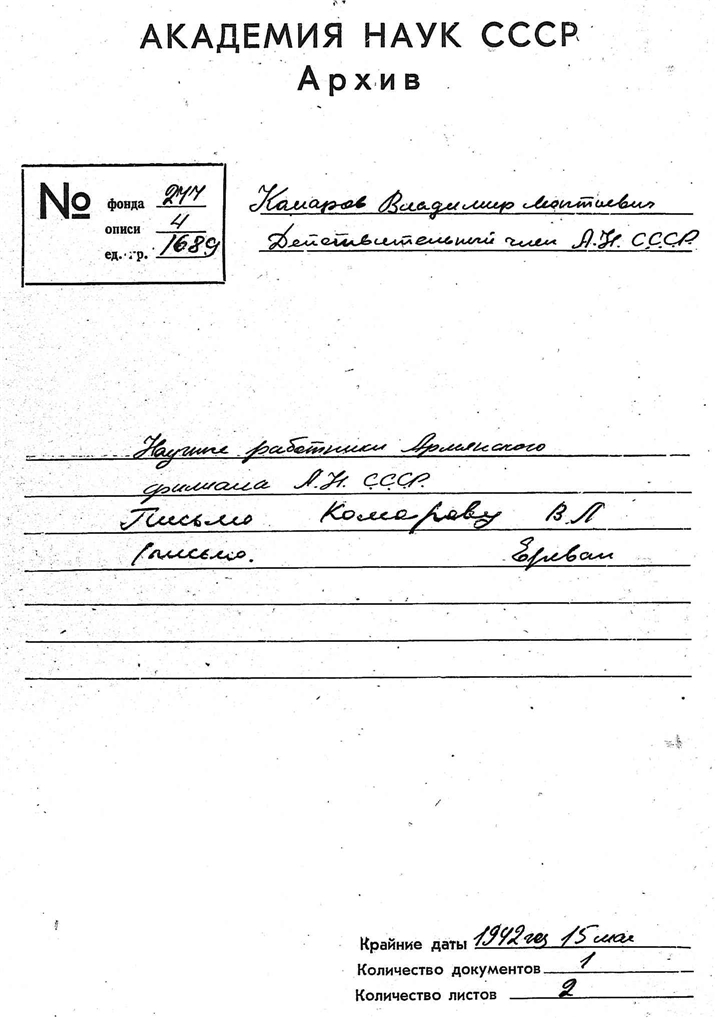 АКАДЕМИЯ НАУК СССР
Архив
№ фонда 277
описи 4
ед. хр. 1689
Комаров Владимир Леонтиевич
Действительный член А.Н. СССР
Научные работники Армянского
филиала А.Н. СССР.
Письмо Комарову В Л
1 письмо. Ереван
Крайние даты 1942 год 15 мая
Количество документов 1
Количество листов 2